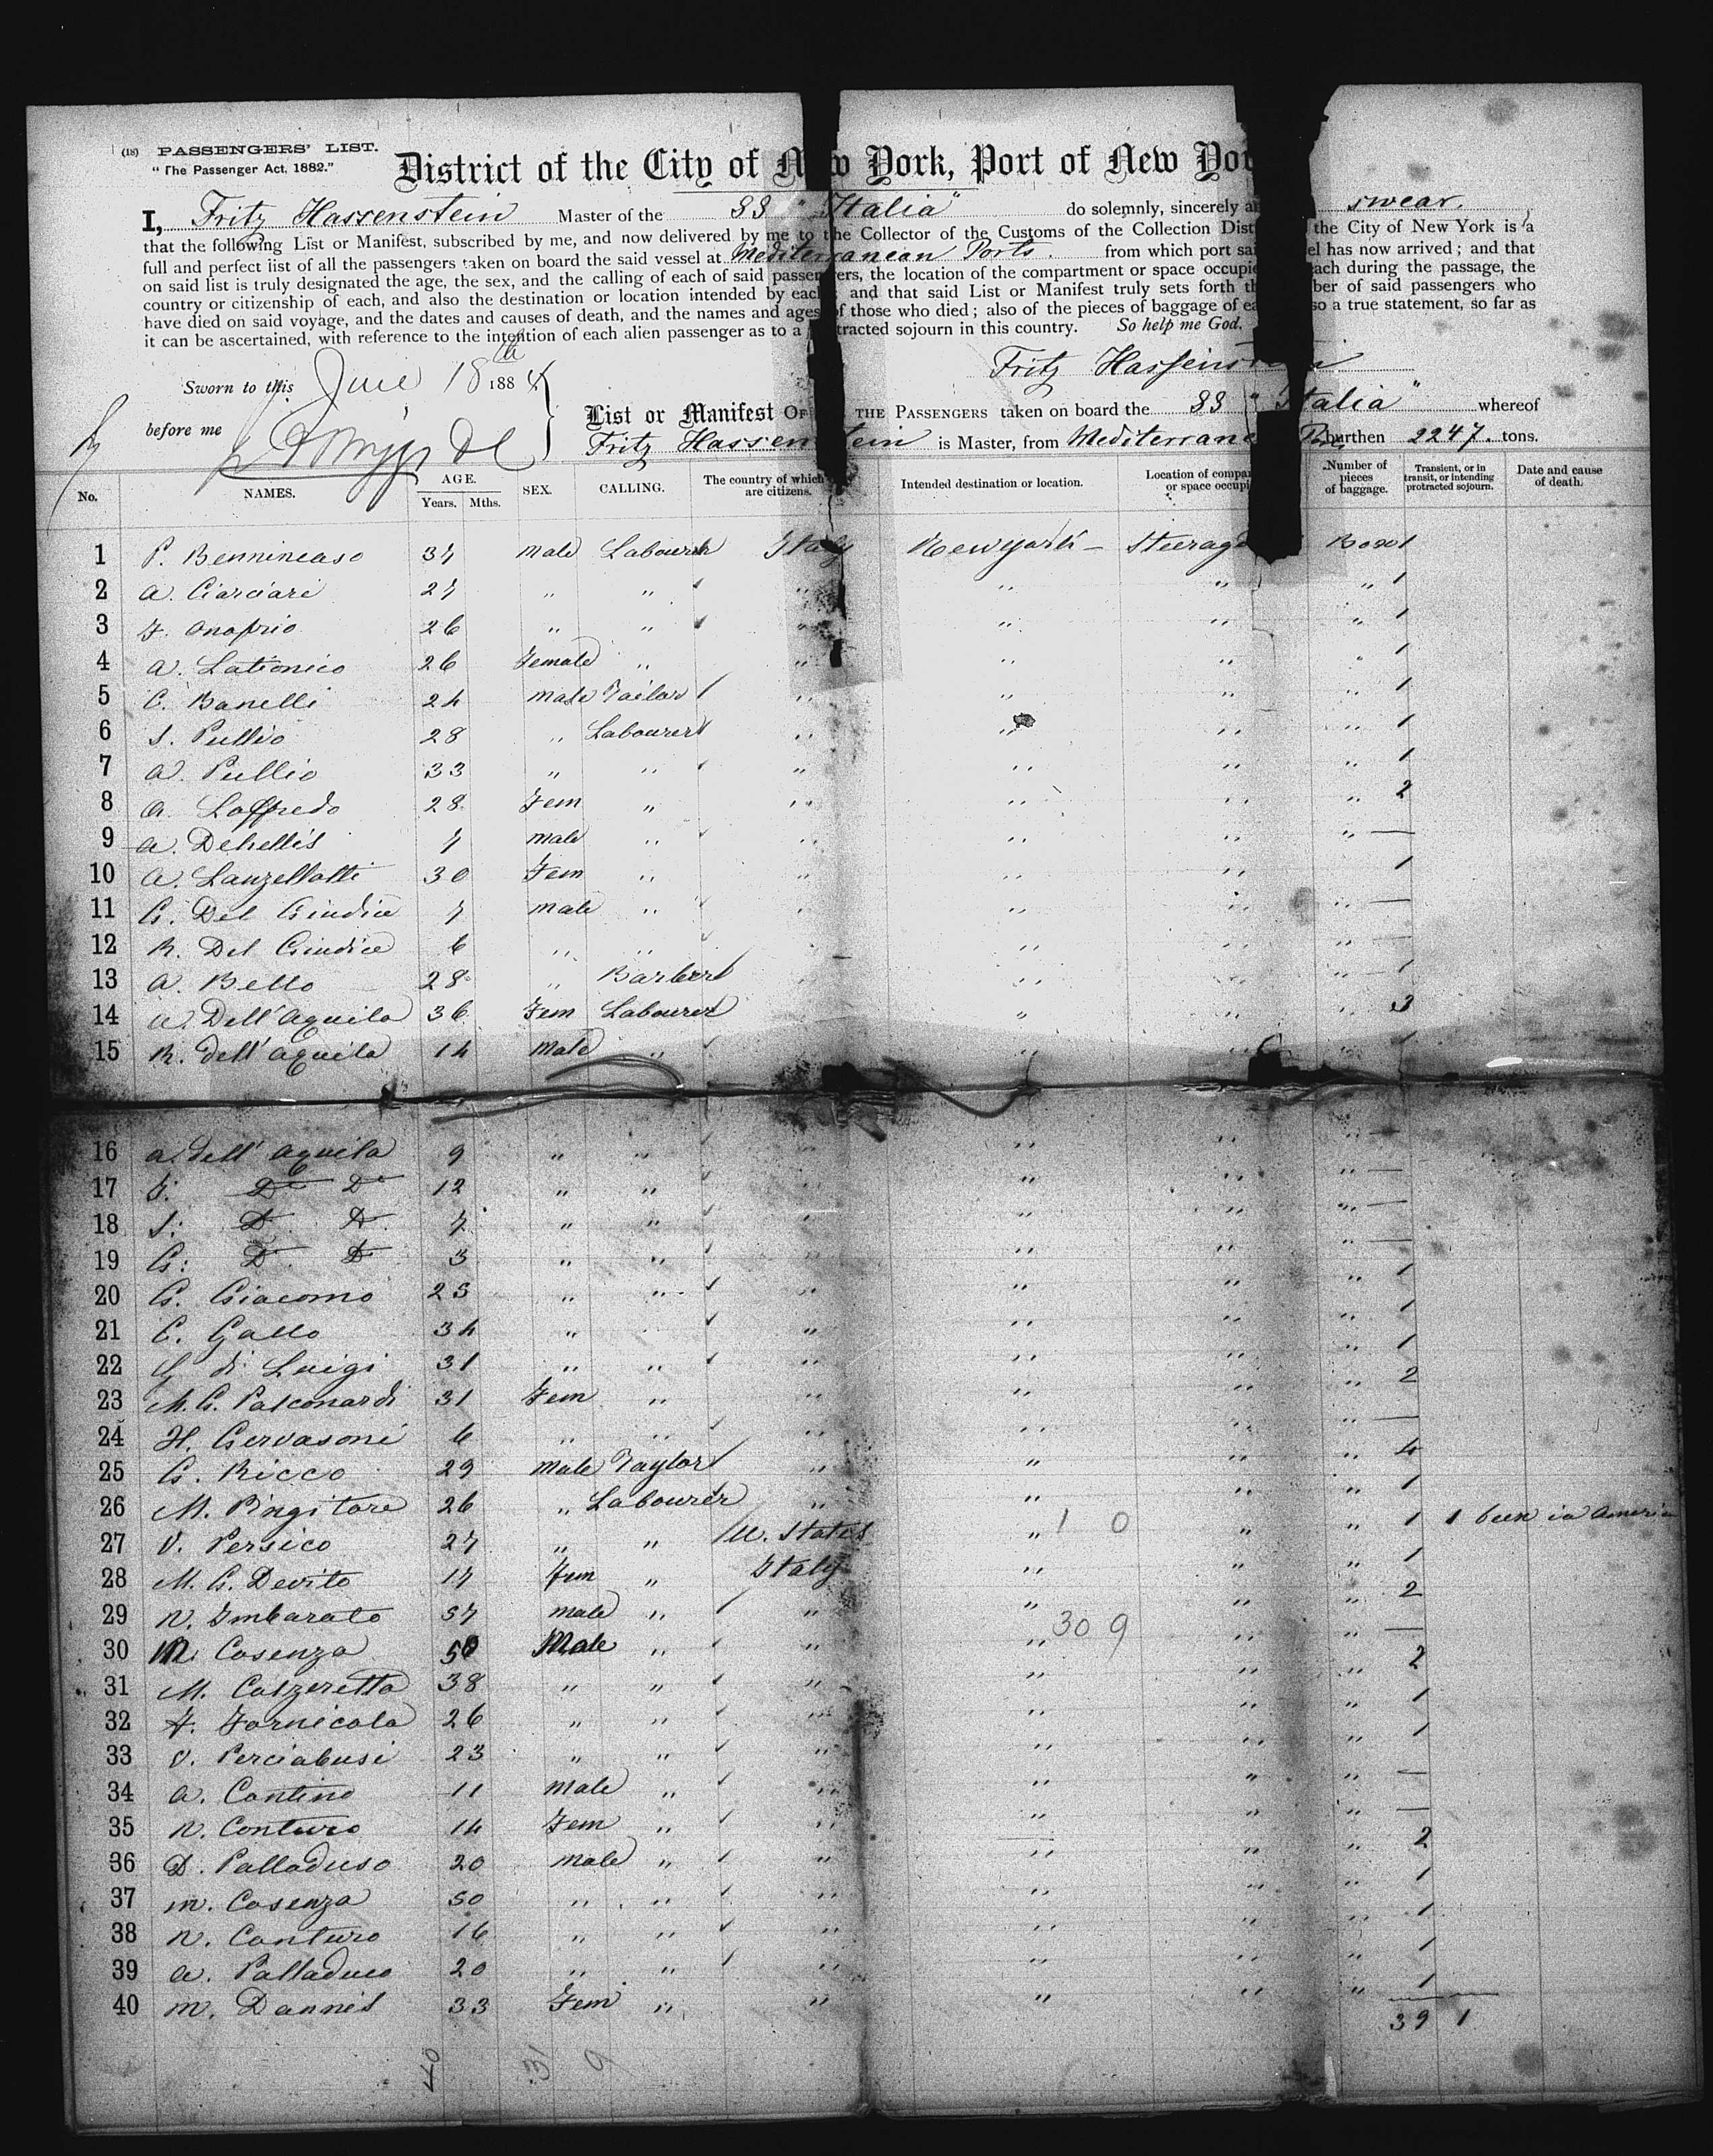 (18) PASSENGERS' LIST.
"The Passenger Act, 1882."
District of the City of New York, Port of New Yor
I, Fritz Hassenstein Master of the SS "Italia" do solemnly, sincerely a swear.
that the following List or Manifest, subscribed by me, and now delivered by me to the Collector of the Customs of the Collection Dist the City of New York is a
full and perfect list of all the passengers taken on board the said vessel at Mediterranean Ports. from which port sai el has now arrived; and that
on said list is truly designated the age, the sex, and the calling of each of said passengers, the location of the compartment or space occupie each during the passage, the
country or citizenship of each, and also the destination or location intended by each; and that said List or Manifest truly sets forth th ber of said passengers who
have died on said voyage, and the dates and causes of death, and the names and ages of those who died; also of the pieces of baggage of ea so a true statement, so far as
it can be ascertained, with reference to the intention of each alien passenger as to a tracted sojourn in this country. So help me God.
Fritz Hassenstein
Sworn to this June 18th 1884
before me
List or Manifest OF THE PASSENGERS taken on board the SS "Italia" whereof
Fritz Hassenstein is Master, from Mediterranean Ports burthen 2247. tons.
No. NAMES. AGE. Years. Mths. SEX. CALLING. The country of which are citizens. Intended destination or location. Location of compar or space occupi Number of pieces of baggage. Transient, or in transit, or intending protracted sojourn. Date and cause of death.
1 P. Bennincaso 37 male Labourer Italy New york - Steerage Box 1
2 A. Ciarciari 27 " " " " " " 1
3 F. Onofrio 26 " " " " " " 1
4 A. Lationico 26 Female " " " " " 1
5 C. Banelli 24 male Tailor " " " " 1
6 S. Pullio 28 " Labourer " " " " 1
7 A. Pullio 33 " " " " " " 1
8 A. Loffredo 28 Fem " " " " " 2
9 A. Dehellis 7 male " " " " " —
10 A. Lanzellatti 30 Fem " " " " " 1
11 G. Del Giudice 7 male " " " " " —
12 R. Del Giudice 6 " " " " " " —
13 A. Bello 28 " Barber " " " " 1
14 A. Dell'Aquila 36 Fem Labourer " " " 3
15 R. dell'Aquila 14 male " " " " " 1
16 A. dell'Aquila 9 " " " " " " —
17 F. Do Do 12 " " " " " " —
18 S. Do Do 7 " " " " " " —
19 G. Do Do 3 " " " " " " —
20 G. Giacomo 25 " " " " " " 1
21 C. Gallo 34 " " " " " 1
22 G di Luigi 31 " " " " " " 1
23 M. G. Pasconardi 31 Fem " " " " " 2
24 H. Gervasoni 6 " " " " " " —
25 G. Ricco 29 male Taylor " " " " 4
26 M. Pingitore 26 " Labourer " " " " 1
27 V. Persico 27 " " U. States " 1 0 " " 1 1 been in America
28 M. G. Devito 17 Fem " Italy " " " 1
29 N. Imbarato 57 male " " " " " 2
30 M. Cosenza 50 Male " " " 30 9 " " —
31 M. Calzeretta 38 " " " " " " 2
32 F. Fornicola 26 " " " " " " 1
33 V. Perciabusi 23 " " " " " " 1
34 A. Contino 11 male " " " " " —
35 N. Conturo 14 Fem " " " " " —
36 D. Palladuso 20 male " " " " " 2
37 M. Cosenza 50 " " " " " " 1
38 N. Conturo 16 " " " " " " 1
39 A. Palladuco 20 " " " " " " 1
40 M. Dannis 33 Fem " " " " " 1
39 1
40 31 9